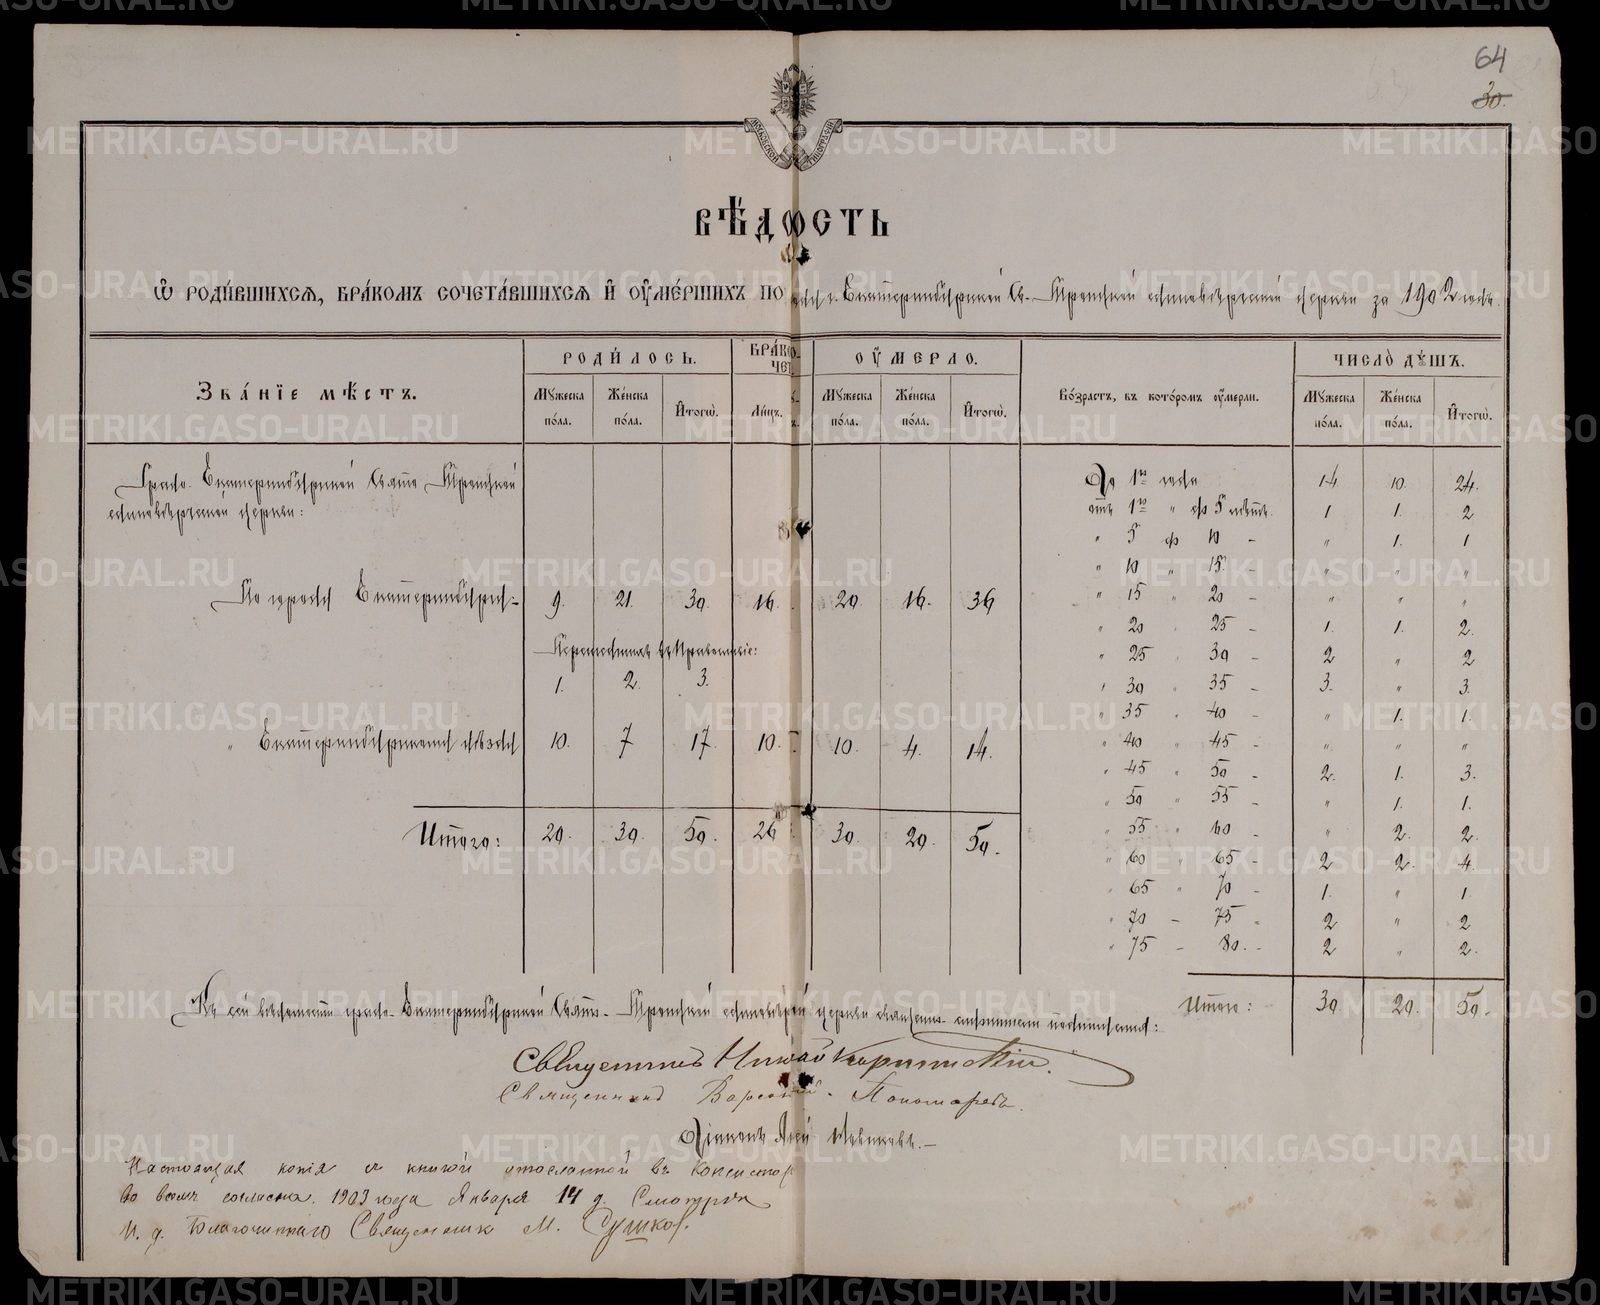 64
30.
МОСКОВСКОЙ ТИПОГРАФІИ
ВѢДОСТЬ
Ѡ РОДИВШИХСЯ, БРАКОМЪ СОЧЕТАВШИХСЯ И ОУМЕРШИХЪ ПО Екатеринбургской Св.-Троицкой единовѣрческой церкви за 1902 годъ.
ЗВАНІЕ МѢСТЪ. РОДИЛОСЬ. ОУМЕРЛО. Возрастъ, въ которомъ оумерли. ЧИСЛО ДУШЪ.
Мужеска пола. Женска пола. Итогѡ. Лицъ. Мужеска пола. Женска пола. Итогѡ. Мужеска пола. Женска пола. Итогѡ.
Градо-Екатеринбургской Свято-Троицкой
единовѣрческой церкви:
По городу Екатеринбургу: 9. 21. 30. 16. 20. 16. 36
1. 2. 3.
" Екатеринбургскому уѣзду 10. 7 17. 10. 10. 4. 14.
Итого: 20. 30. 50. 26 30. 20. 50.
До 1го года 14 10. 24.
отъ 1го " до 5 лѣтъ. 1 1. 2
" 5 до 10 - " 1. 1
" 10 " 15. - " " "
" 15 " 20 - " " "
" 20 " 25 - 1. 1. 2.
" 25 " 30 - 2 " 2
" 30 " 35 - 3. " 3.
" 35 " 40 - " 1. 1.
" 40 " 45 - " " "
" 45 " 50 - 2. 1. 3.
" 50 " 55 - " 1. 1.
" 55 " 60 - " 2. 2.
" 60 " 65 - 2 2. 4.
" 65 " 70 - 1. " 1.
" 70 - 75 - 2 " 2
" 75 - 80. - 2 " 2.
Итого: 30 20. 50.
Къ сей вѣдомости градо-Екатеринбургской Свято-Троицкой церкви
Священникъ
Священникъ Пономаревъ.
Діаконъ
Настоящая копія съ книгой отосланной въ
во всемъ согласна. 1903 года Января 14 д. Смотрѣлъ
И. д. Благочиннаго Священникъ М. Сушковъ.
METRIKI.GASO-URAL.RU